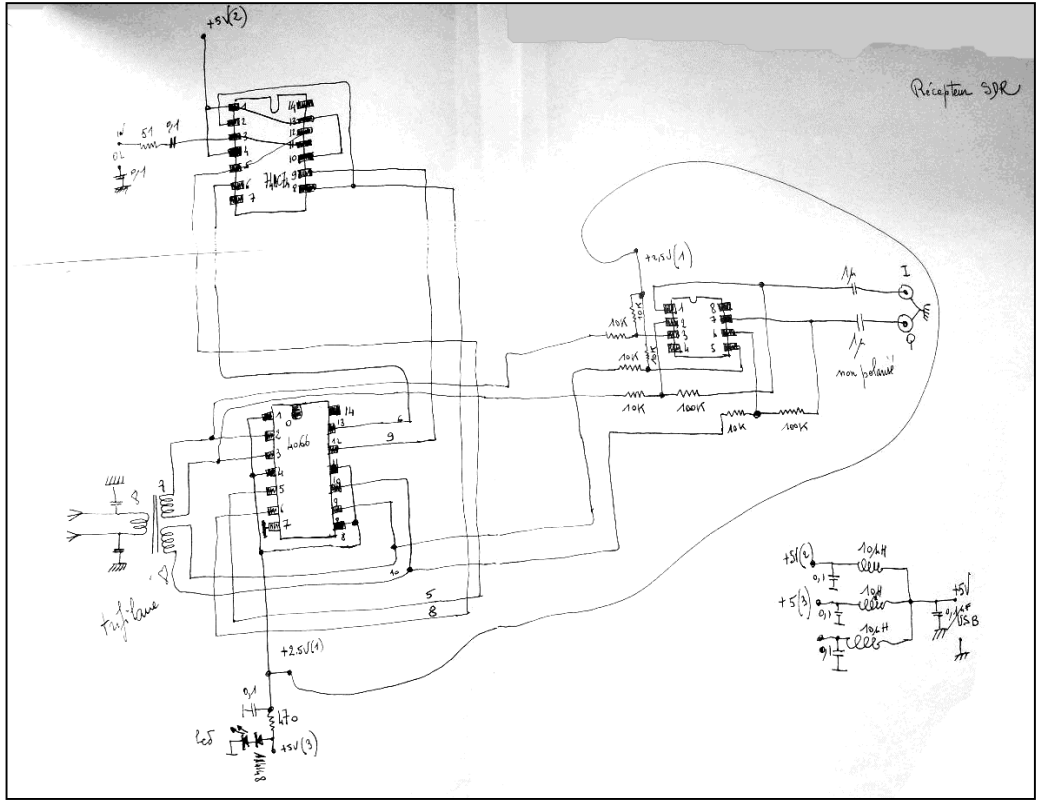 +5V(2)
Récepteur SDR
1
2
3
4
5
6
7
14
13
12
11
10
9
8
74AC74
51
0,1
OL
0,1
+2,5V(1)
10K
10K
10K
10K
1
2
3
4
8
7
6
5
10K
100K
10K
100K
1µ
1µ
I
Q
non polarisé
1
2
3
4
5
6
7
14
13
12
11
10
9
8
4066
6
9
10
5
8
7
8
8
trifilaire
+2.5V(1)
0,1
470
Led
+5V(3)
1N4148
+5V(2)
10µH
0,1
+5(3)
10µH
0,1
10µH
0,1
+5V
USB